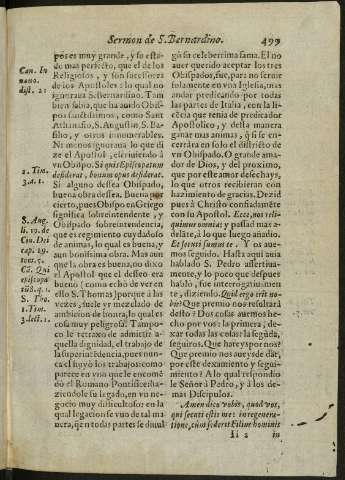 Sermon de S. Bernardino. 499
Can. In
nouo.
dist. 21
2. Tim.
3. d. 1.
S. Aug.
li. 19. de
Ciu. Dei
cap. 19.
tom. 5.
Cã. Qui
episcopa
tũ 8. q. 1.
S. Tho.
1. Tim.
3. lect. 1.
por es muy grande, y su esta-
do mas perfecto, que el de los
Religiosos, y son successores
de los Apostoles: lo qual no
ignoraua S. Bernardino. Tam
bien sabia, que ha auido Obis-
pos sanctissimos, como Sant
Athanasio, S. Augustin, S. Ba-
silio, y otros innumerables.
Ni menos ignoraua lo que di
ze el Apostol, escriuiendo à
vn Obispo. Si quis Episcopatum
desiderat, bonum opus desiderat.
Si alguno dessea Obispado,
buena obra dessea. Buena por
cierto, pues Obispo en Griego
significa sobreintendente, y
Obispado sobreintendencia,
que es regimiento cuydadoso
de animas, lo qual es buena, y
aun bonissima obra. Mas aun
que la obra es buena, no dixo
el Apostol que el desseo era
bueno (como echò de ver en
esso S. Thomas) porque à las
vezes, suele yr mezclado de
ambicion de honra, lo qual es
cosa muy peligrosa. Tampo-
co le retraxo de admitir a
quella dignidad, el trabajo de
la superintẽdẽcia, pues nun-
ca el huyò los trabajos: como
parece en vna que le encomẽ
dò el Romano Pontifice: ha-
ziendole su legado, en vn ne-
gocio muy dificultoso: en la
qual legacion se vuo de tal ma
nera, q̃ en todas partes se diuul
gò su celeberrima fama. El no
auer querido aceptar los tres
Obispados, fue, para no seruir
solamente en vna Iglesia, mas
andar predicando por todas
las partes de Italia, con la li-
cẽcia que tenia de predicador
Apostolico, y desta manera
ganar mas animas, q̃ si se en-
cerràra en solo el districto de
vn Obispado. O grande ama-
dor de Dios, y del proximo,
que por este amor desechays,
lo que otros recibieran con
hazimiento de gracias. Dezid
pues à Christo confiadamẽte
con su Apostol. Ecce, nos reli-
quimus omnia: y passad mas a-
delãte, à lo que luego añadio.
Et secuti sumus te. Y os aue-
mos seguido. Hasta aqui auia
hablado S. Pedro assertiua-
mente, y lo poco que despues
hablò, fue interrogatiuamen
te, diziendo. Quid ergo erit no-
bis? Que premio nos resultarà
desto? Dos cosas auemos he-
cho por vos: la primera, de-
xar todas las cosas: la segũda,
seguiros. Que hareys por nos?
Que premio nos aueys de dar,
por este dexamiento y segui-
miento? A lo qual respondio
le Señor à Pedro, y à los de-
mas Discipulos.
Amen dico vobis, quod vos,
qui secuti estis me: in regenera-
tione, cùm sederit Filius hominis
Ii 2 in